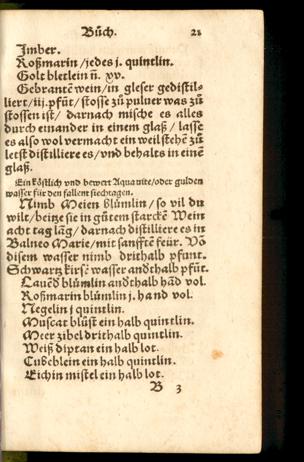 Bůch. 21
Imber.
Roßmarin / jedes j. quintlin.
Golt bletlein n̄. xv.
Gebrantē wein / in gleser gedistil-
liert / iij. pfūt / stosse zů puluer was zů
stossen ist / darnach mische es alles
durch einander in einem glaß / lasse
es also wol vermacht ein weil stehē zů
letst distilliere es / vnd behalts in einē
glaß.
Ein köstlich vnd bewert Aqua uite / oder gulden
wasser für den fallent siechtagen.
Nimb Meien blůmlin / so vil du
wilt / beitze sie in gůtem starckē Wein
acht tag lāg / darnach distilliere es in
Balneo Marie / mit sanfftē feür. Vō
disem wasser nimb drithalb pfunt.
Schwartz kirsē wasser andthalb pfūt.
Lauēd blůmlin andthalb hād vol.
Roßmarin blůmlin j. hand vol.
Negelin j quintlin.
Muscat blůst ein halb quintlin.
Meer zibel drithalb quintlin.
Weiß diptan ein halb lot.
Cubeblein ein halb quintlin.
Eichin mistel ein halb lot.
B 3